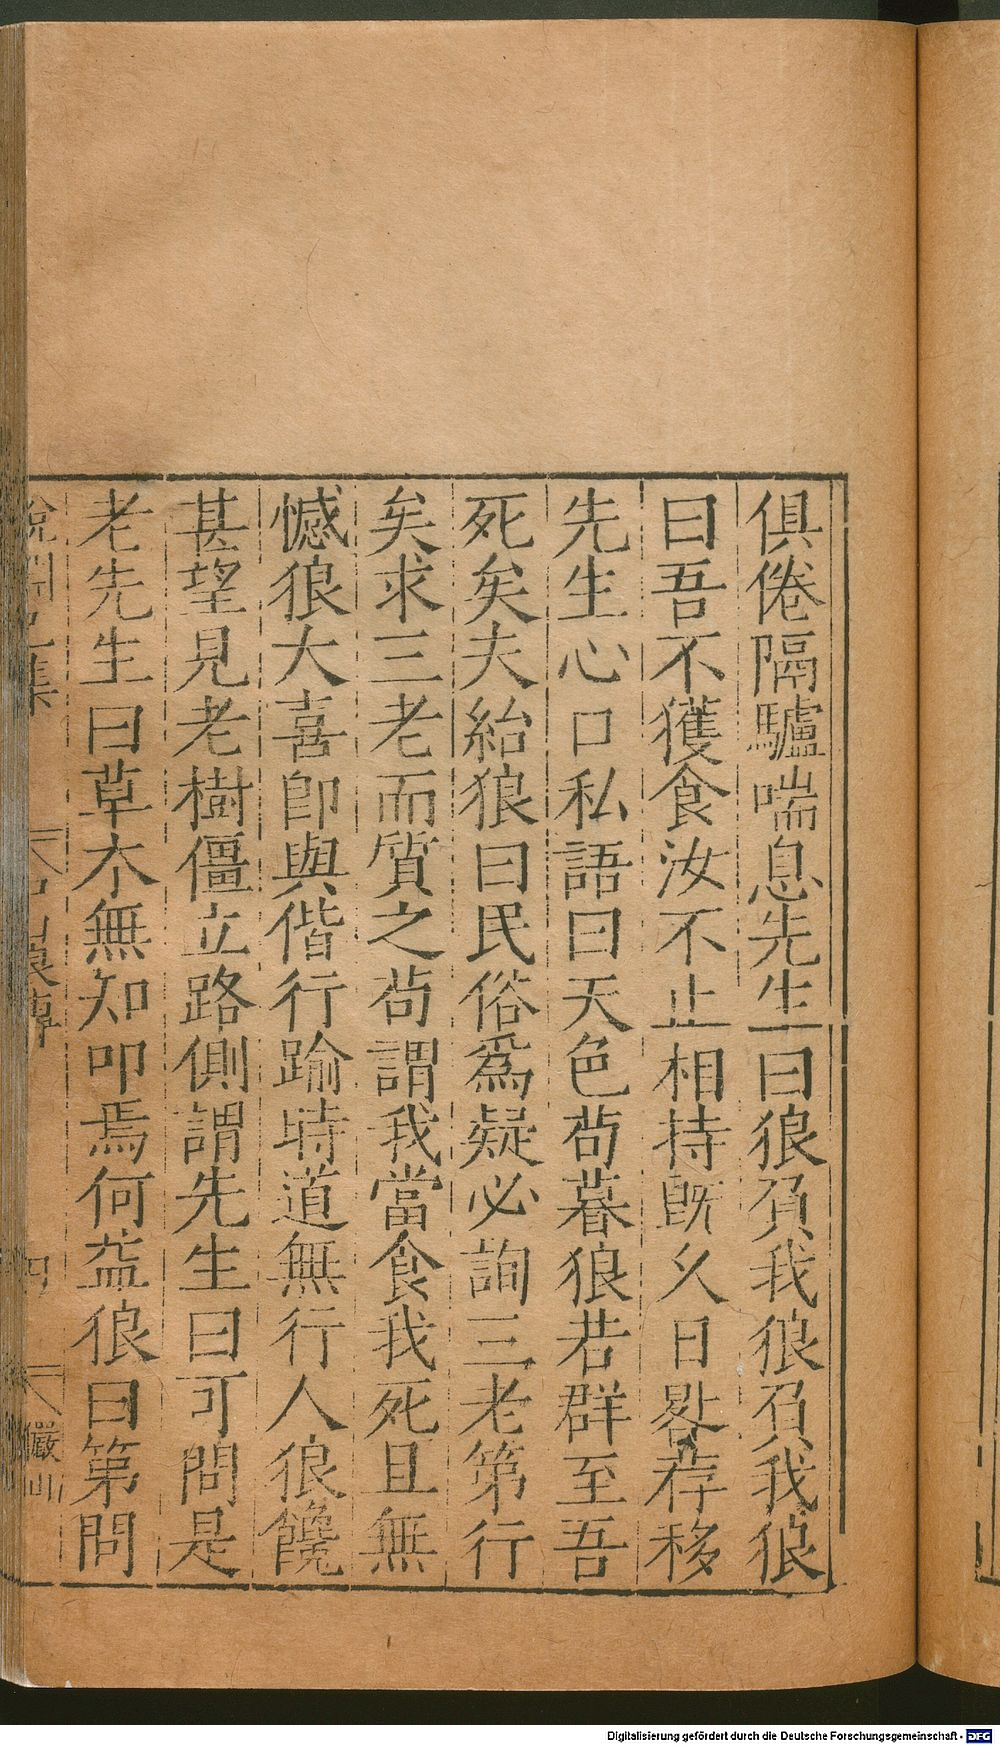 俱倦隔驢喘息先生曰狼負我狼負我狼
曰吾不獲食汝不止相持既久日晷荐移
先生心口私語曰天色茍暮狼若群至吾
死矣夫紿狼曰民俗爲疑必詢三老第行
矣求三老而質之茍謂我當食我死且無
憾狼大喜卽與偕行踰時道無行人狼饞
甚望見老樹僵立路側謂先生曰可問是
老先生曰草木無知叩焉何益狼曰第問
集
四
儼山
Digitalisierung gefördert durch die Deutsche Forschungsgemeinschaft - DFG